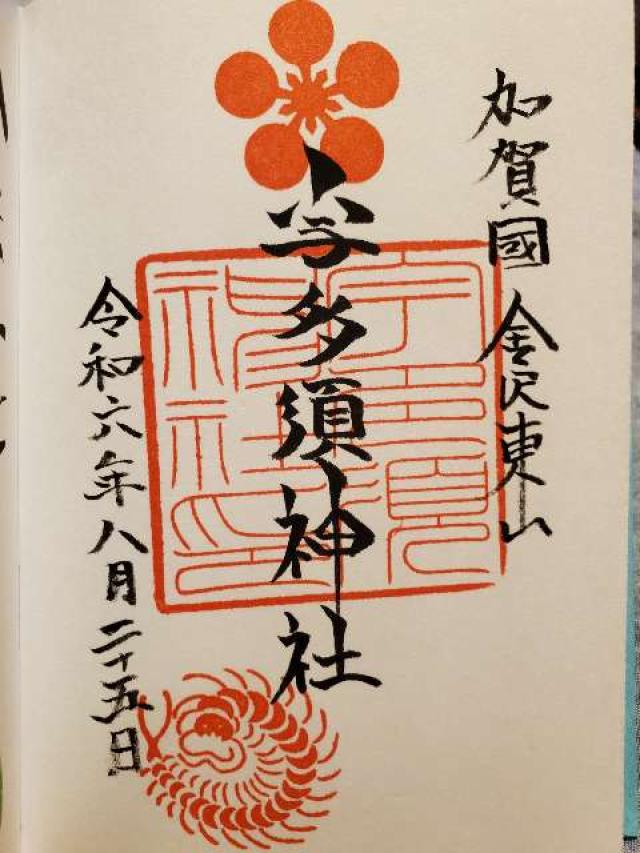 加賀國 金沢東山
宇多須神社
令和六年八月二十五日